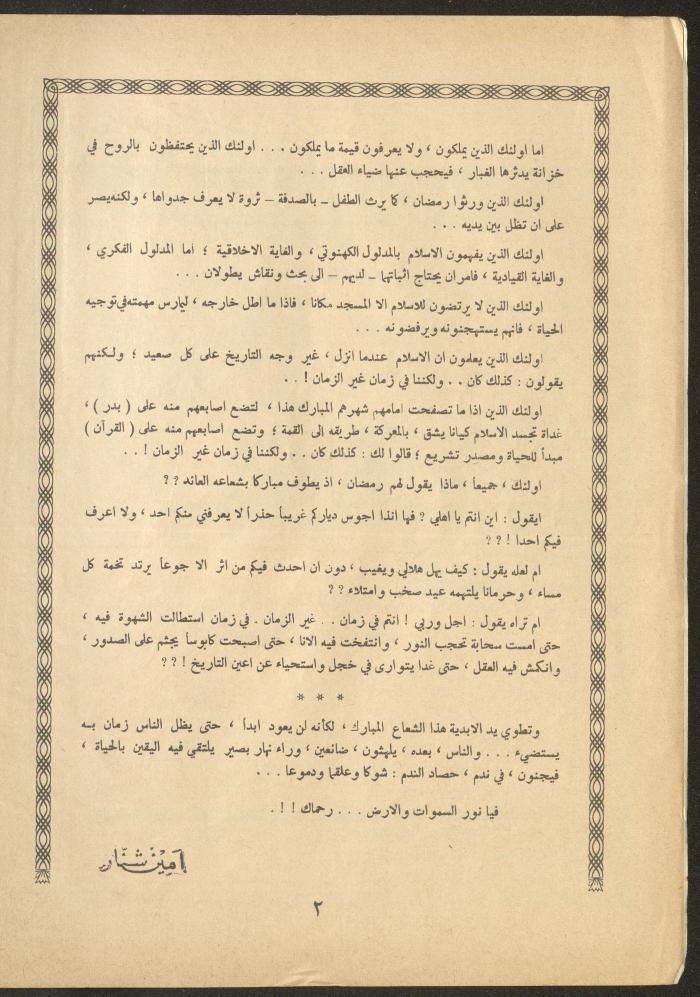 اما اولئك الذين يملكون ، ولا يعرفون قيمة ما يملكون . . . اولئك الذين يحتفظون بالروح في
خزانة يدثرها الغبار ، فيحجب عنها ضياء العقل . . .
اولئك الذين ورثوا رمضان ، كما يرث الطفل – بالصدفة – ثروة لا يعرف جدواها ، ولكنه يصر
على ان تظل بين يديه . . .
اولئك الذين يفهمون الاسلام بالمدلول الكهنوتي ، والغاية الاخلاقية ؛ اما المدلول الفكري ،
والغاية القيادية ، فامران يحتاج اثباتها – لديهم – الى بحث ونقاش يطولان . . .
اولئك الذين لا يرتضون للاسلام الا المسجد مكانا ، فاذا ما اطل خارجه ، ليمارس مهمته في توجيه
الحياة ، فانهم يستهجنونه ويرفضونه . . .
اولئك الذين يعلمون ان الاسلام عندما انزل ، غير وجه التاريخ على كل صعيد ؛ ولكنهم
يقولون : كذلك كان . . ولكننا في زمان غير الزمان ! . .
اولئك الذين اذا ما تصفحت امامهم شهرهم المبارك هذا ، لتضع اصابعهم منه على ( بدر ) ،
غداة تجسد الاسلام كيانا يشق ، بالمعركة ، طريقه الى القمة ؛ وتضع اصابعهم منه على ( القرآن )
مبدأ للحياة ومصدر تشريع ؛ قالوا لك : كذلك كان . . ولكننا في زمان غير الزمان ! . .
اولئك ، جميعاً ، ماذا يقول لهم رمضان ، اذ يطوف مباركا بشعاعه العائد ؟ ؟
ايقول : اين انتم يا اهلي ؟ فها انذا اجوس دياركم غريباً حذراً لا يعرفني منكم احد ، ولا اعرف
فيكم احدا ! ؟ ؟
ام لعله يقول : كيف يهل هلالي ويغيب ، دون ان احدث فيكم من اثر الا جوعاً يرتد تخمة كل
مساء ، وحرمانا يلتهمه عيد صخب وامتلاء ؟ ؟
ام تراه يقول : اجل وربي ! انتم في زمان . . غير الزمان . في زمان استطالت الشهوة فيه ،
حتى امست سحابة تحجب النور ، وانتفخت فيه الانا ، حتى اصبحت كابوساً يجثم على الصدور ،
وانكمش فيه العقل ، حتى غدا يتوارى في خجل واستحياء عن اعين التاريخ ! ؟ ؟
* * *
وتطوي يد الابدية هذا الشعاع المبارك ، لكأنه لن يعود ابداً ، حتى يظل الناس زمان به
يستضيء . . . والناس ، بعده ، يلهثون ، ضائعين ، وراء نهار بصير يلتقي فيه اليقين بالحياة ،
فيجنون ، في ندم ، حصاد الندم : شوكا وعلقما ودموعا . . .
فيا نور السموات والارض . . . رحماك ! ! .
امين شنار
٢